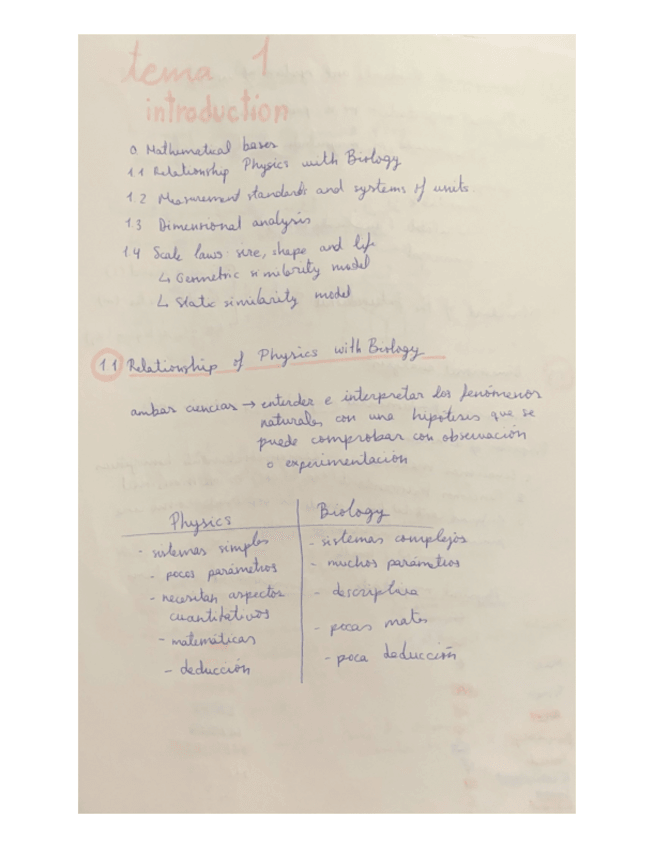 tema 1
introduction
0 Mathematical bases
1.1 Relationship Physics with Biology
1.2 Measurement standards and systems of units
1.3 Dimensional analysis
1.4 Scale laws: size, shape and life
↳ Geometric similarity model
↳ Static similarity model
1.1 Relationship of Physics with Biology
ambas ciencias → entender e interpretar los fenómenos
naturales con una hipótesis que se
puede comprobar con observación
o experimentación
Physics
Biology
- sistemas simples
- sistemas complejos
- pocos parámetros
- muchos parámetros
- necesitan aspectos
cuantitativos
- descriptiva
- matemáticas
- pocas mates
- deducción
- poca deducción